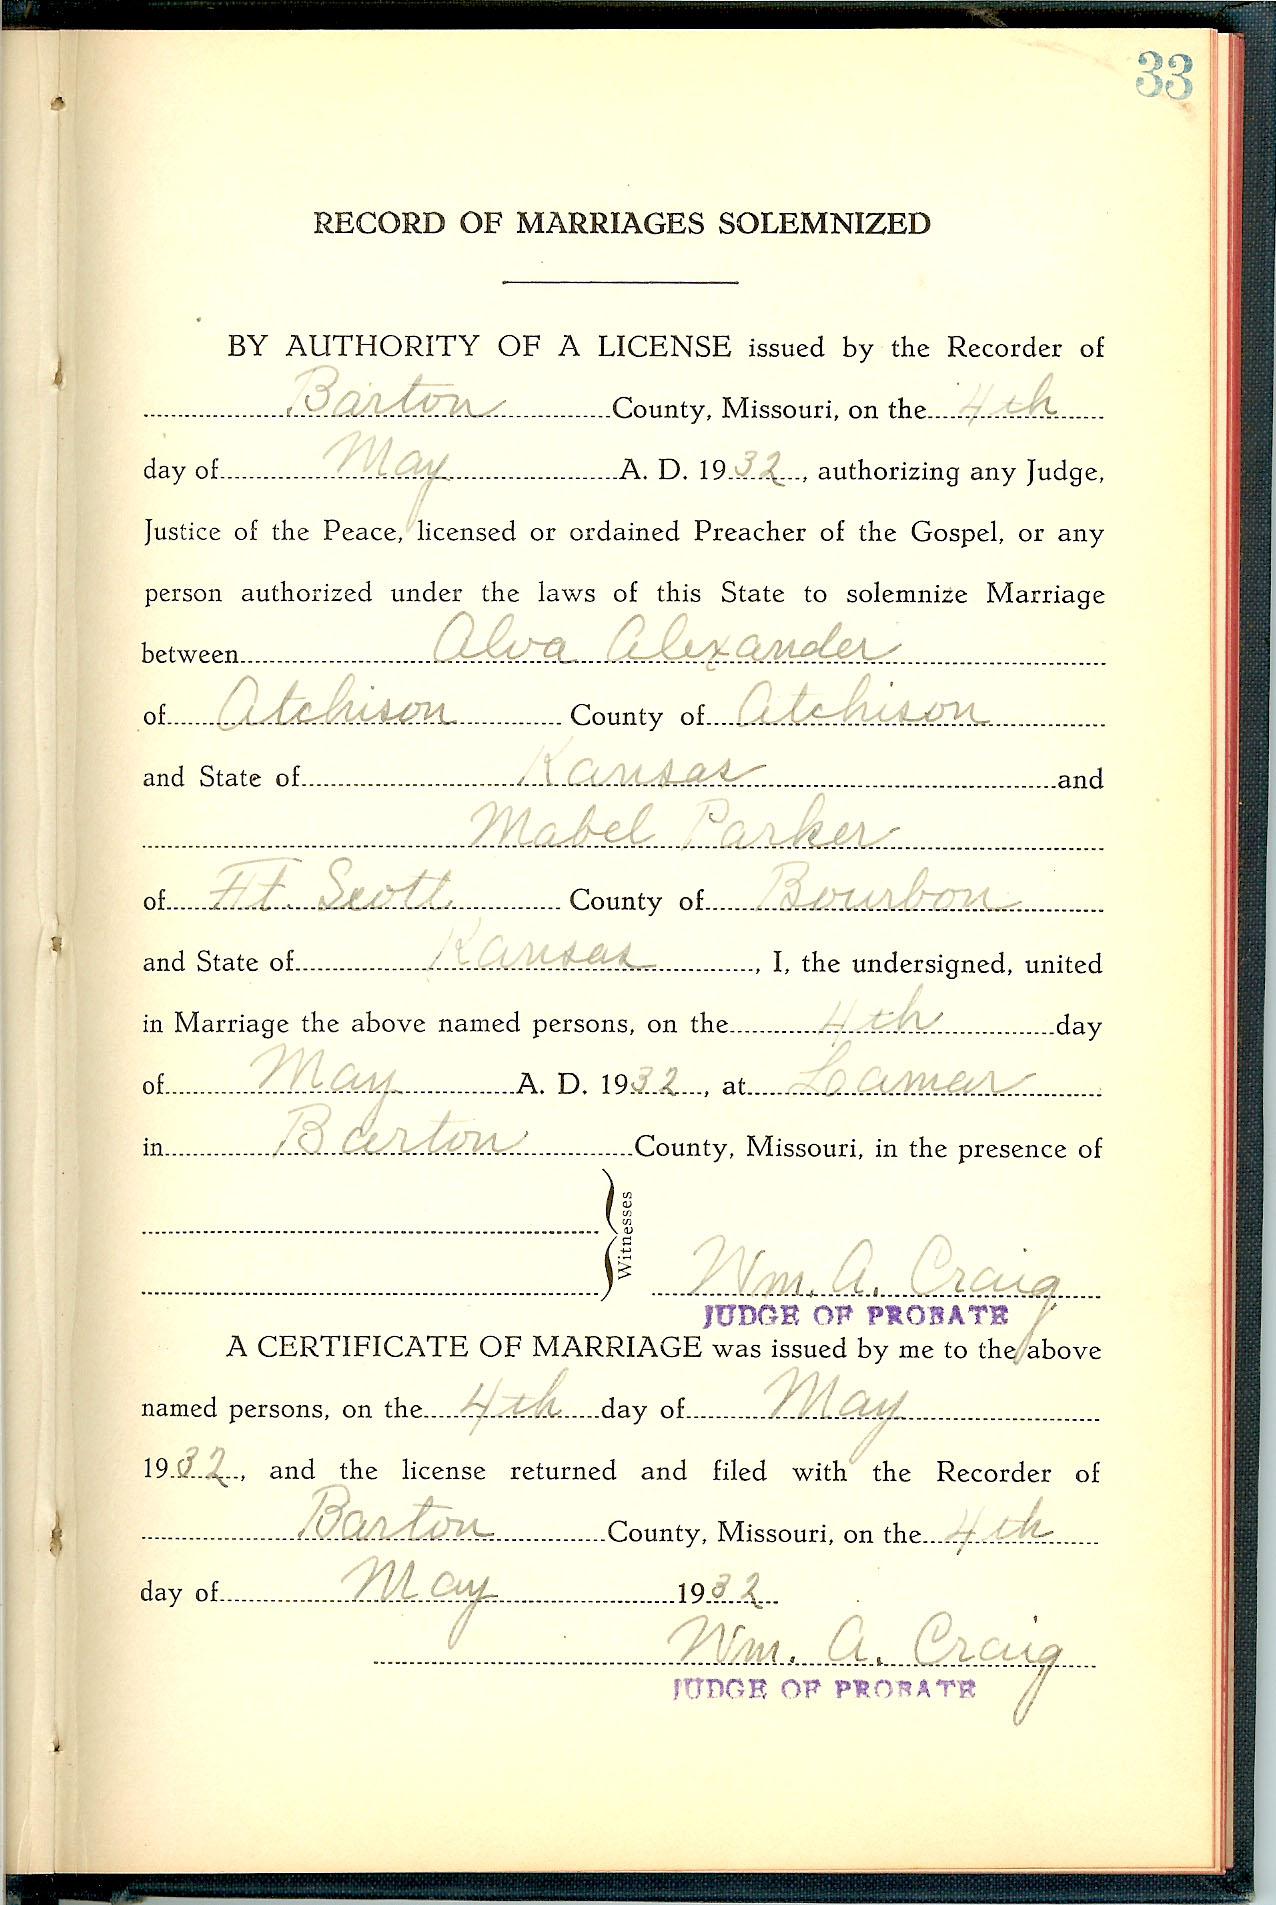 33
RECORD OF MARRIAGES SOLEMNIZED
BY AUTHORITY OF A LICENSE issued by the Recorder of
Barton County, Missouri, on the 4th
day of May A. D. 1932, authorizing any Judge,
Justice of the Peace, licensed or ordained Preacher of the Gospel, or any
person authorized under the laws of this State to solemnize Marriage
between Alva Alexander
of Atchison County of Atchison
and State of Kansas and
Mabel Parker
of Ft. Scott County of Bourbon
and State of Kansas, I, the undersigned, united
in Marriage the above named persons, on the 4th day
of May A. D. 1932, at Lamar
in Barton County, Missouri, in the presence of
Witnesses
Wm. A. Craig
JUDGE OF PROBATE
A CERTIFICATE OF MARRIAGE was issued by me to the above
named persons, on the 4th day of May
1932, and the license returned and filed with the Recorder of
Barton County, Missouri, on the 4th
day of May 1932
Wm. A. Craig
JUDGE OF PROBATE